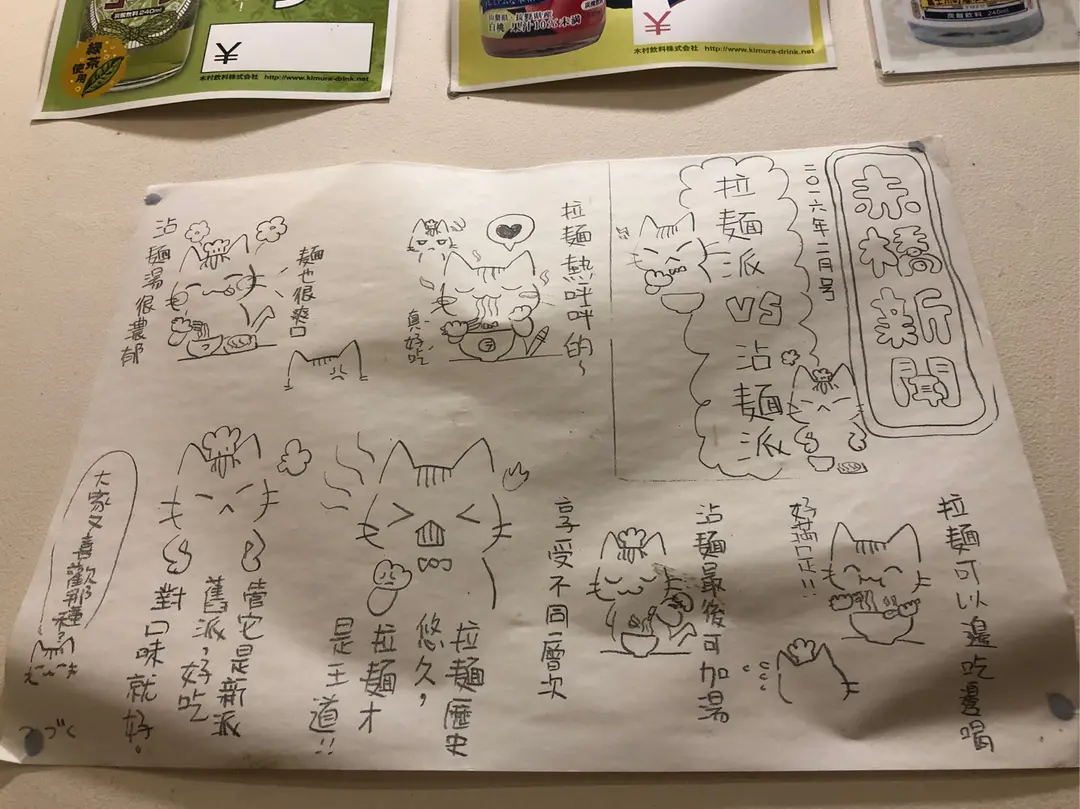 炭酸飲料 240ml
緑茶使用
木村飲料株式会社 http://www.kimura-drink.net
山梨県、長野県産
白桃 果汁10%未満
木村飲料株式会社 http://www.kimura-drink.net
炭酸飲料 240ml
赤橋新聞
二〇一六年二月号
拉麵派
VS
沾麵派
拉麵熱呼呼的~
真好吃
麵也很爽口
沾麵湯很濃郁
拉麵可以邊吃邊喝
好滿足!!
沾麵最後可加湯
享受不同層次
拉麵歷史
悠久,
拉麵才
是王道!!
管它是新派
舊派,好吃
對口味就好。
大家又喜歡那種?
つづく